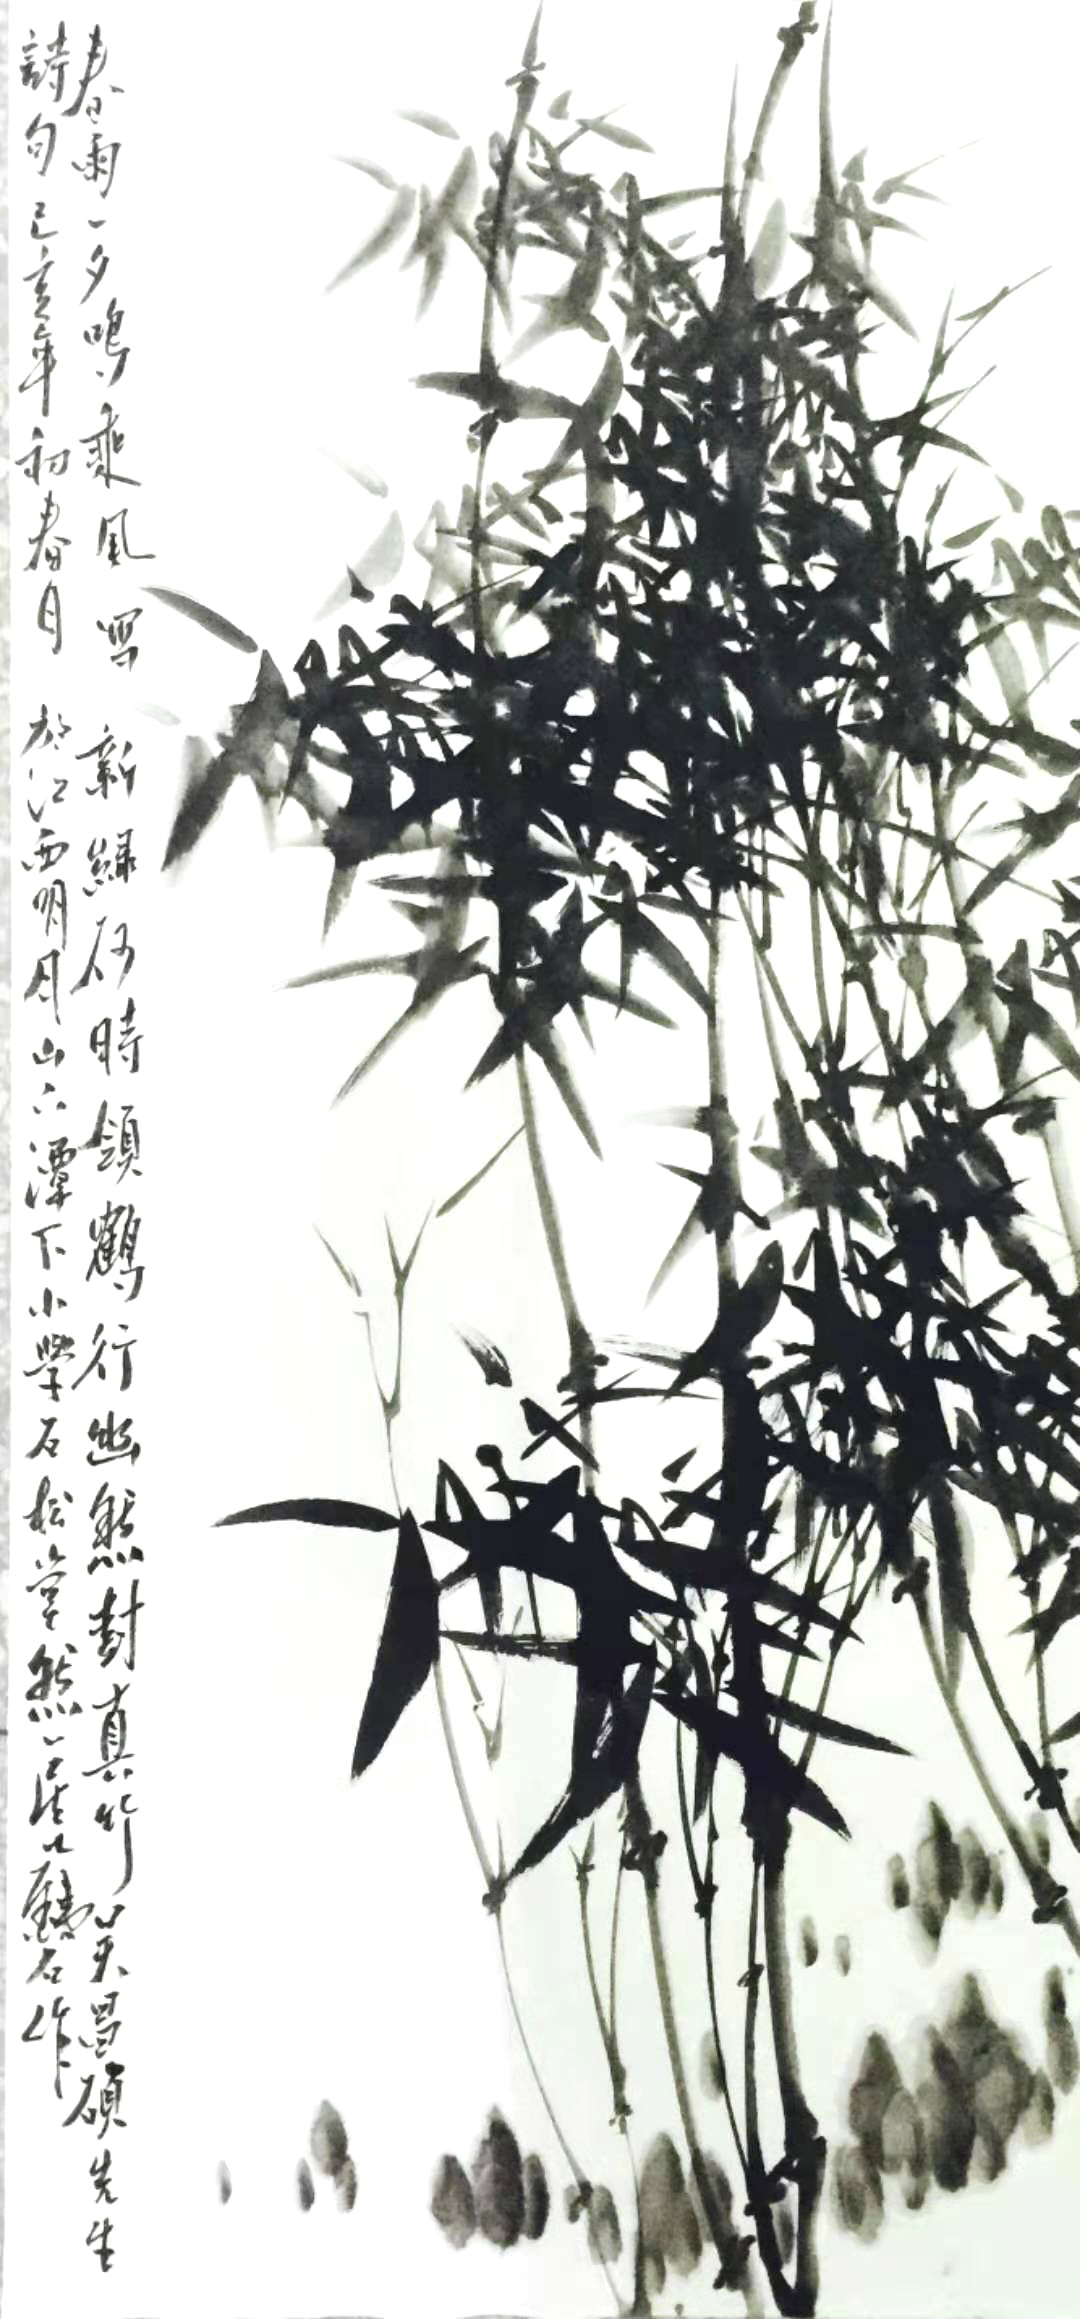 春雨一夕鳴乘風寫新綠何時領鶴行幽然對真竹吳昌碩先生
詩句己亥年初春月於江西明月山六潭下小學石松堂然居鑄石作